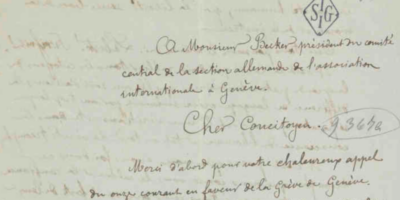 IISG
A Monsieur Becker, président du comité
central de la section allemande de l'association
internationale à Genève.
Cher Concitoyen.
Merci d'abord pour votre chaleureux appel
du onze courant en faveur de la grève de Genève.